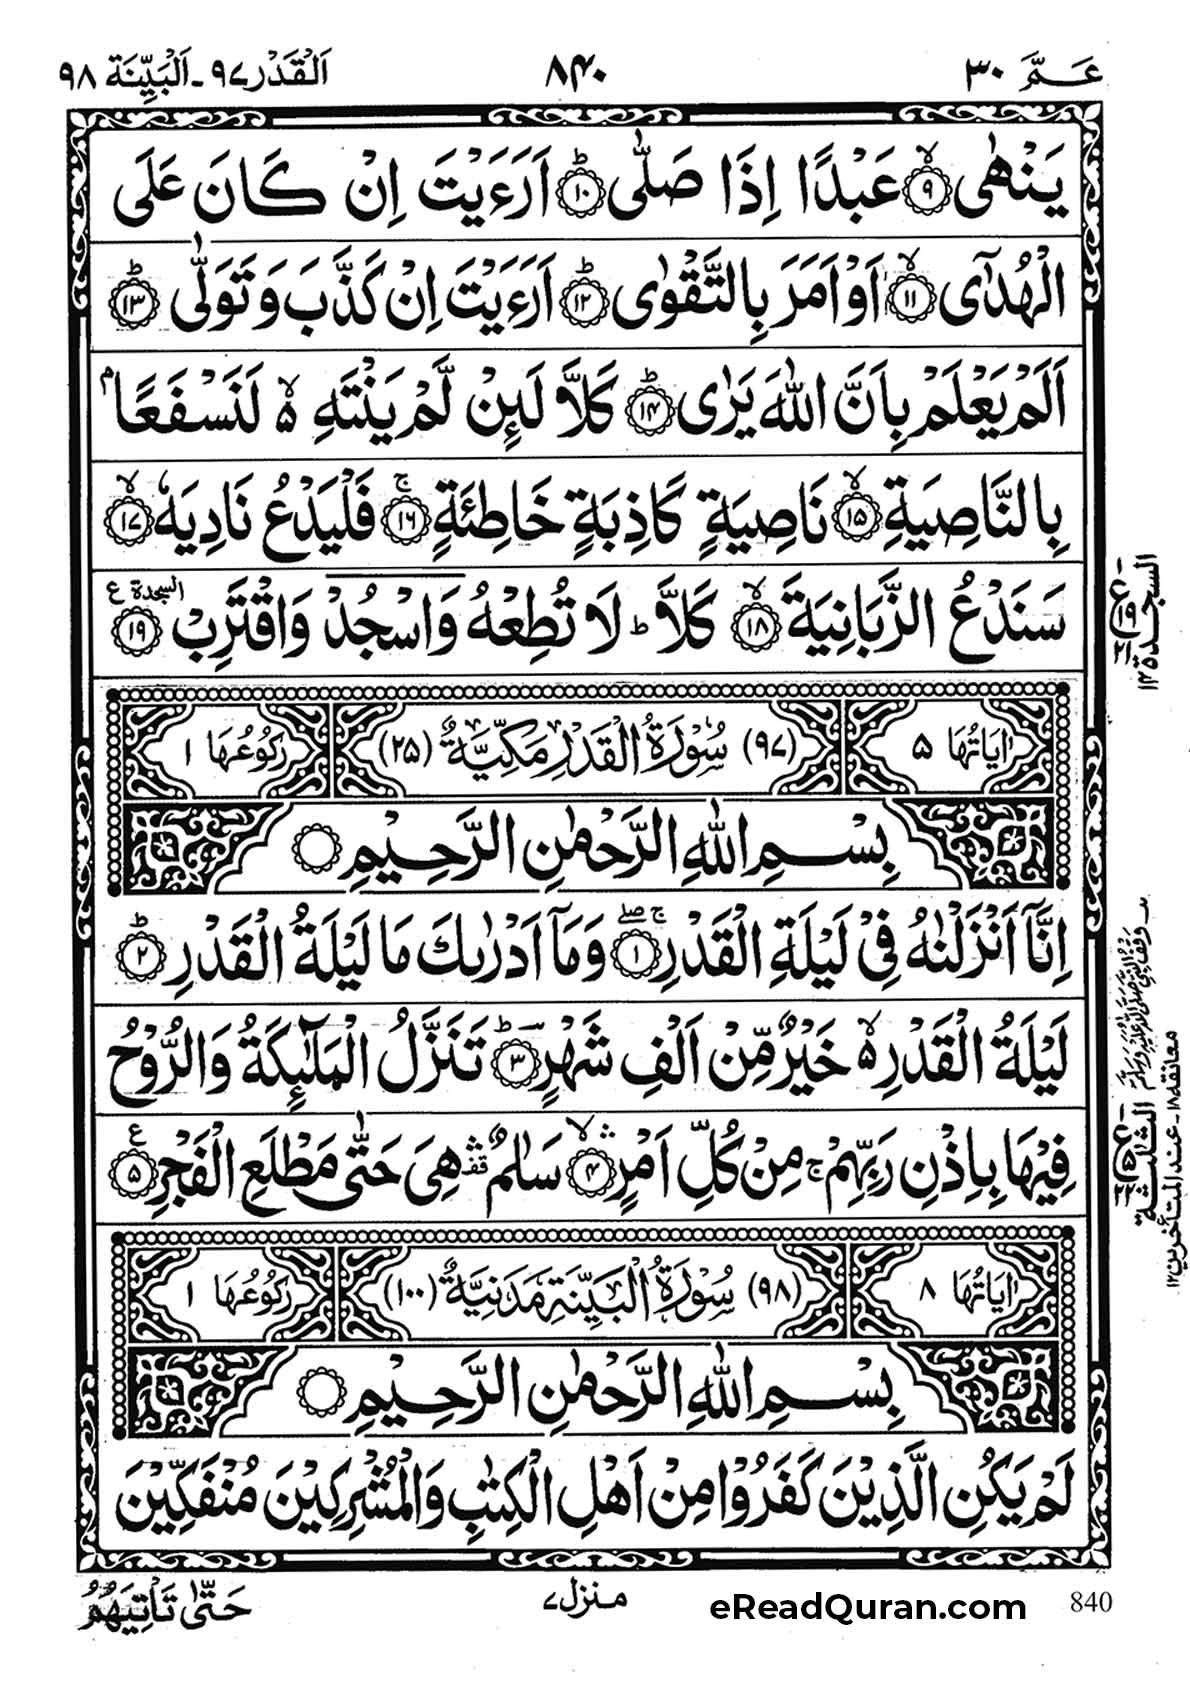 عَـمَّ ٣٠
٨٤٠
اَلْقَدْر ٩٧ - اَلْبَيِّنَة ٩٨
يَنْهٰى ۙ﴿٩﴾ عَبْدًا اِذَا صَلّٰى ؕ﴿١٠﴾ اَرَءَيْتَ اِنْ كَانَ عَلَى
الْهُدٰٓى ۙ﴿١١﴾ اَوْ اَمَرَ بِالتَّقْوٰى ؕ﴿١٢﴾ اَرَءَيْتَ اِنْ كَذَّبَ وَ تَوَلّٰى ؕ﴿١٣﴾
اَلَمْ يَعْلَمْ بِاَنَّ اللّٰهَ يَرٰى ؕ﴿١٤﴾ كَلَّا لَىِٕنْ لَّمْ يَنْتَهِ ۙ۬ لَنَسْفَعًاۢ
بِالنَّاصِيَةِ ۙ﴿١٥﴾ نَاصِيَةٍ كَاذِبَةٍ خَاطِئَةٍ ۚ﴿١٦﴾ فَلْيَدْعُ نَادِيَهٗ ۙ﴿١٧﴾
سَنَدْعُ الزَّبَانِيَةَ ۙ﴿١٨﴾ كَلَّا ؕ لَا تُطِعْهُ وَاسْجُدْ وَاقْتَرِبْ ﴿١٩﴾ السجدة ع
اٰيَاتُهَا ٥
(٩٧) سُوْرَةُ الْقَدْرِ مَكِّيَّةٌ (٢٥)
رُكُوْعُهَا ١
بِسْمِ اللّٰهِ الرَّحْمٰنِ الرَّحِيْمِ
اِنَّاۤ اَنْزَلْنٰهُ فِيْ لَيْلَةِ الْقَدْرِ ۚۖ﴿١﴾ وَمَاۤ اَدْرٰىكَ مَا لَيْلَةُ الْقَدْرِ ؕ﴿٢﴾
لَيْلَةُ الْقَدْرِ ۙ۬ خَيْرٌ مِّنْ اَلْفِ شَهْرٍ ؕ﴿٣﴾ تَنَزَّلُ الْمَلٰٓىِٕكَةُ وَالرُّوْحُ
فِيْهَا بِاِذْنِ رَبِّهِمْ ۚ مِنْ كُلِّ اَمْرٍ ۙۛ﴿٤﴾ سَلٰمٌ ۛ۫ هِيَ حَتّٰى مَطْلَعِ الْفَجْرِ ﴿٥﴾ ع
اٰيَاتُهَا ٨
(٩٨) سُوْرَةُ الْبَيِّنَةِ مَدَنِيَّةٌ (١٠٠)
رُكُوْعُهَا ١
بِسْمِ اللّٰهِ الرَّحْمٰنِ الرَّحِيْمِ
لَمْ يَكُنِ الَّذِيْنَ كَفَرُوْا مِنْ اَهْلِ الْكِتٰبِ وَالْمُشْرِكِيْنَ مُنْفَكِّيْنَ
السجدة
ع ١٩
٢١
الثلثة
معانقة ١٨ - عند المتأخرين ١٢
ع ٥
٢٢
حَتّٰى تَاْتِيَهُمُ
منزل ٧
eReadQuran.com
840